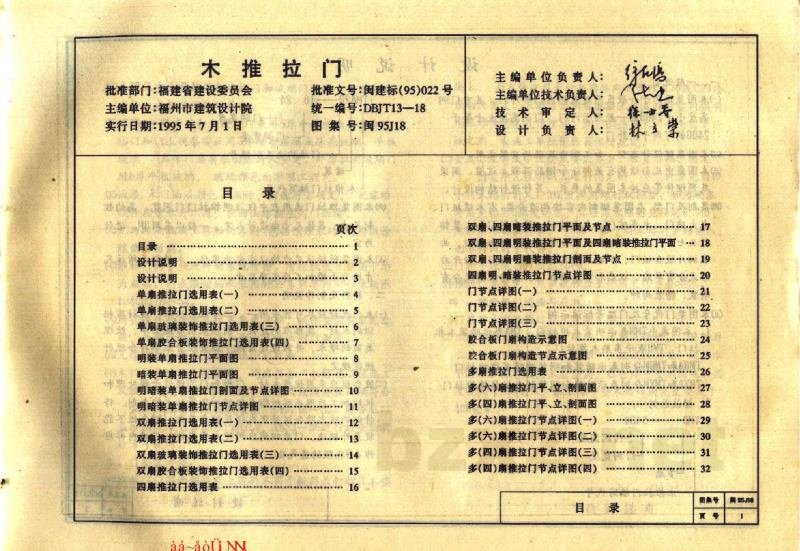 木推拉门
批准部门:福建省建设委员会
批准文号:闽建标(95)022号
主编单位:福州市建筑设计院
统一编号:DBJT13-18
实行日期:1995年7月1日
图集号:闽95J18
主编单位负责人:
主编单位技术负责人:
技术审定人:
设计负责人:
目录
页次
目录 1
设计说明 2
设计说明 3
单扇推拉门选用表(一) 4
单扇推拉门选用表(二) 5
单扇玻璃装饰推拉门选用表(三) 6
单扇胶合板装饰推拉门选用表(四) 7
明装单扇推拉门平面图 8
暗装单扇推拉门平面图 9
明暗装单扇推拉门剖面及节点详图 10
明暗装单扇推拉门节点详图 11
双扇推拉门选用表(一) 12
双扇推拉门选用表(二) 13
双扇玻璃装饰推拉门选用表(三) 14
双扇胶合板装饰推拉门选用表(四) 15
四扇推拉门选用表 16
双扇、四扇暗装推拉门平面及节点 17
双扇、四扇明装推拉门平面及四扇暗装推拉门平面 18
双扇、四扇明暗装推拉门剖面及节点 19
四扇明、暗装推拉门节点详图 20
门节点详图(一) 21
门节点详图(二) 22
门节点详图(三) 23
胶合板门扇构造示意图 24
胶合板门扇构造节点示意图 25
多扇推拉门选用表 26
多(六)扇推拉门平、立、剖面图 27
多(四)扇推拉门平、立、剖面图 28
多(六)扇推拉门节点详图(一) 29
多(六)扇推拉门节点详图(二) 30
多(四)扇推拉门节点详图(三) 31
多(四)扇推拉门节点详图(四) 32
目录
图集号 闽95J18
页号 1